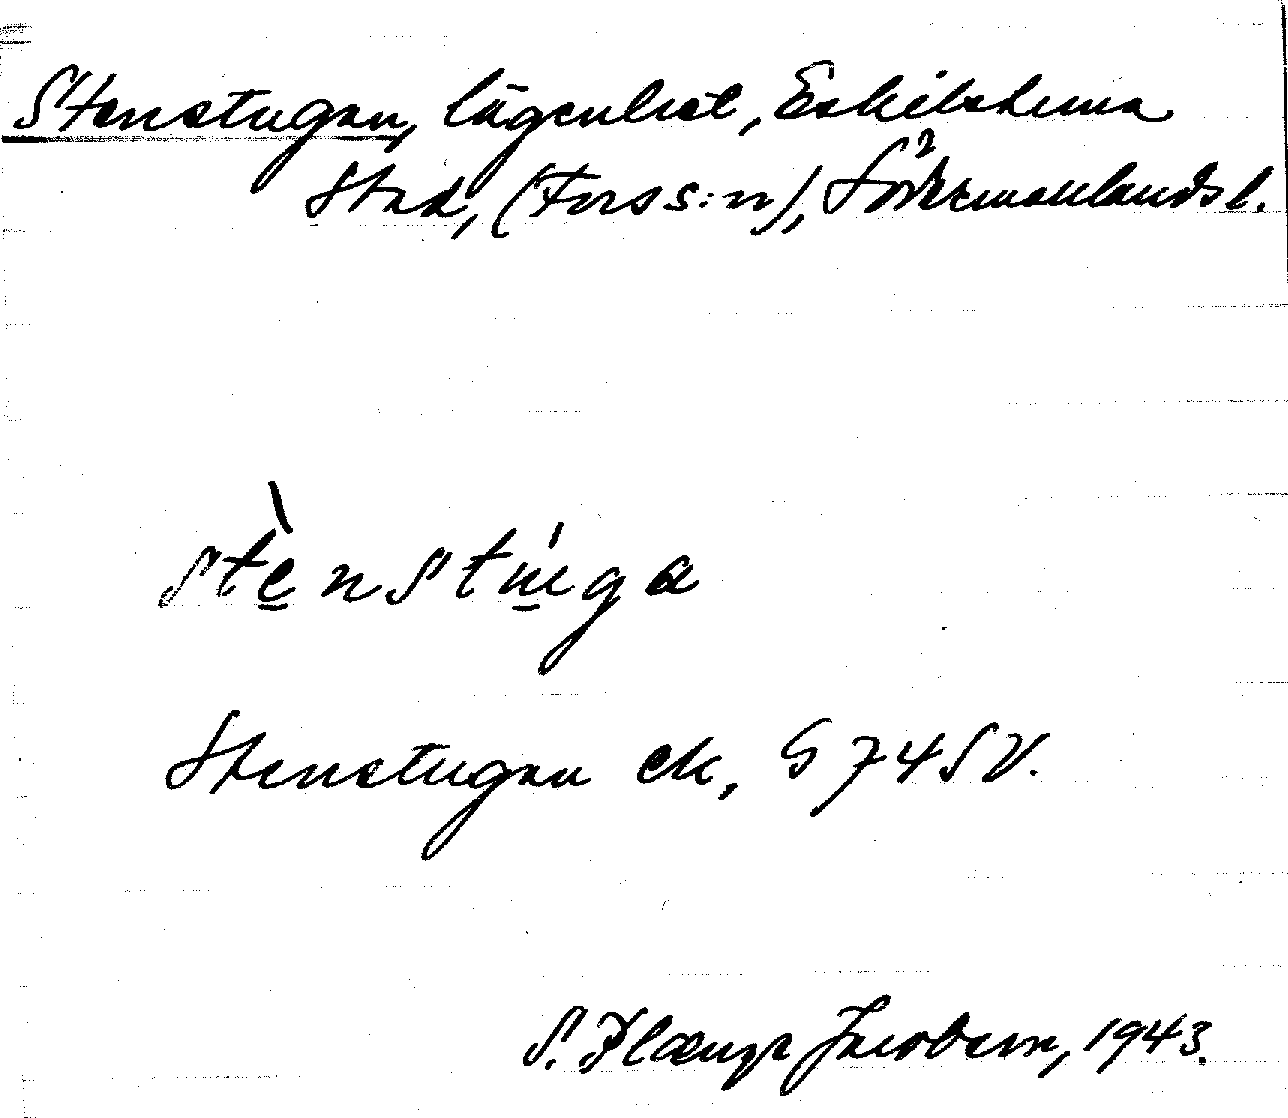 Stenstugan, lägenhet, Eskilstuna
Stad, (Fors s:n), Södermanlands l.
stènstúga
Stenstugan ek, G 74 SV.
S. Jacobsson, 1943.